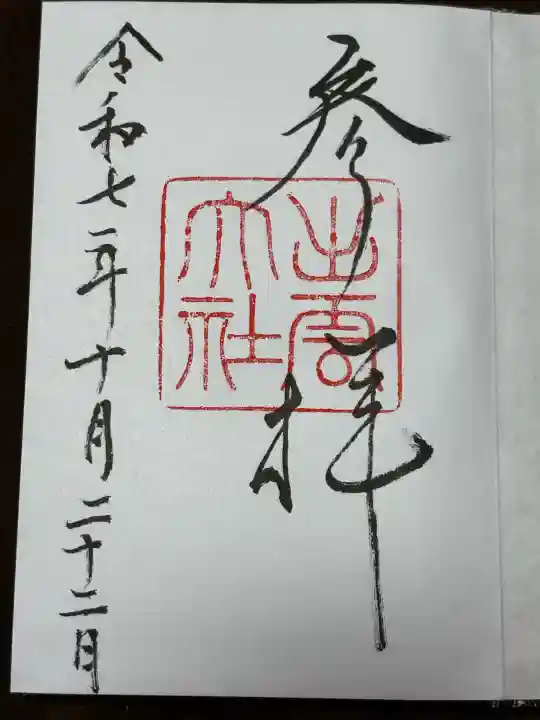 参拝
出雲
大社
令和七年十月二十二日